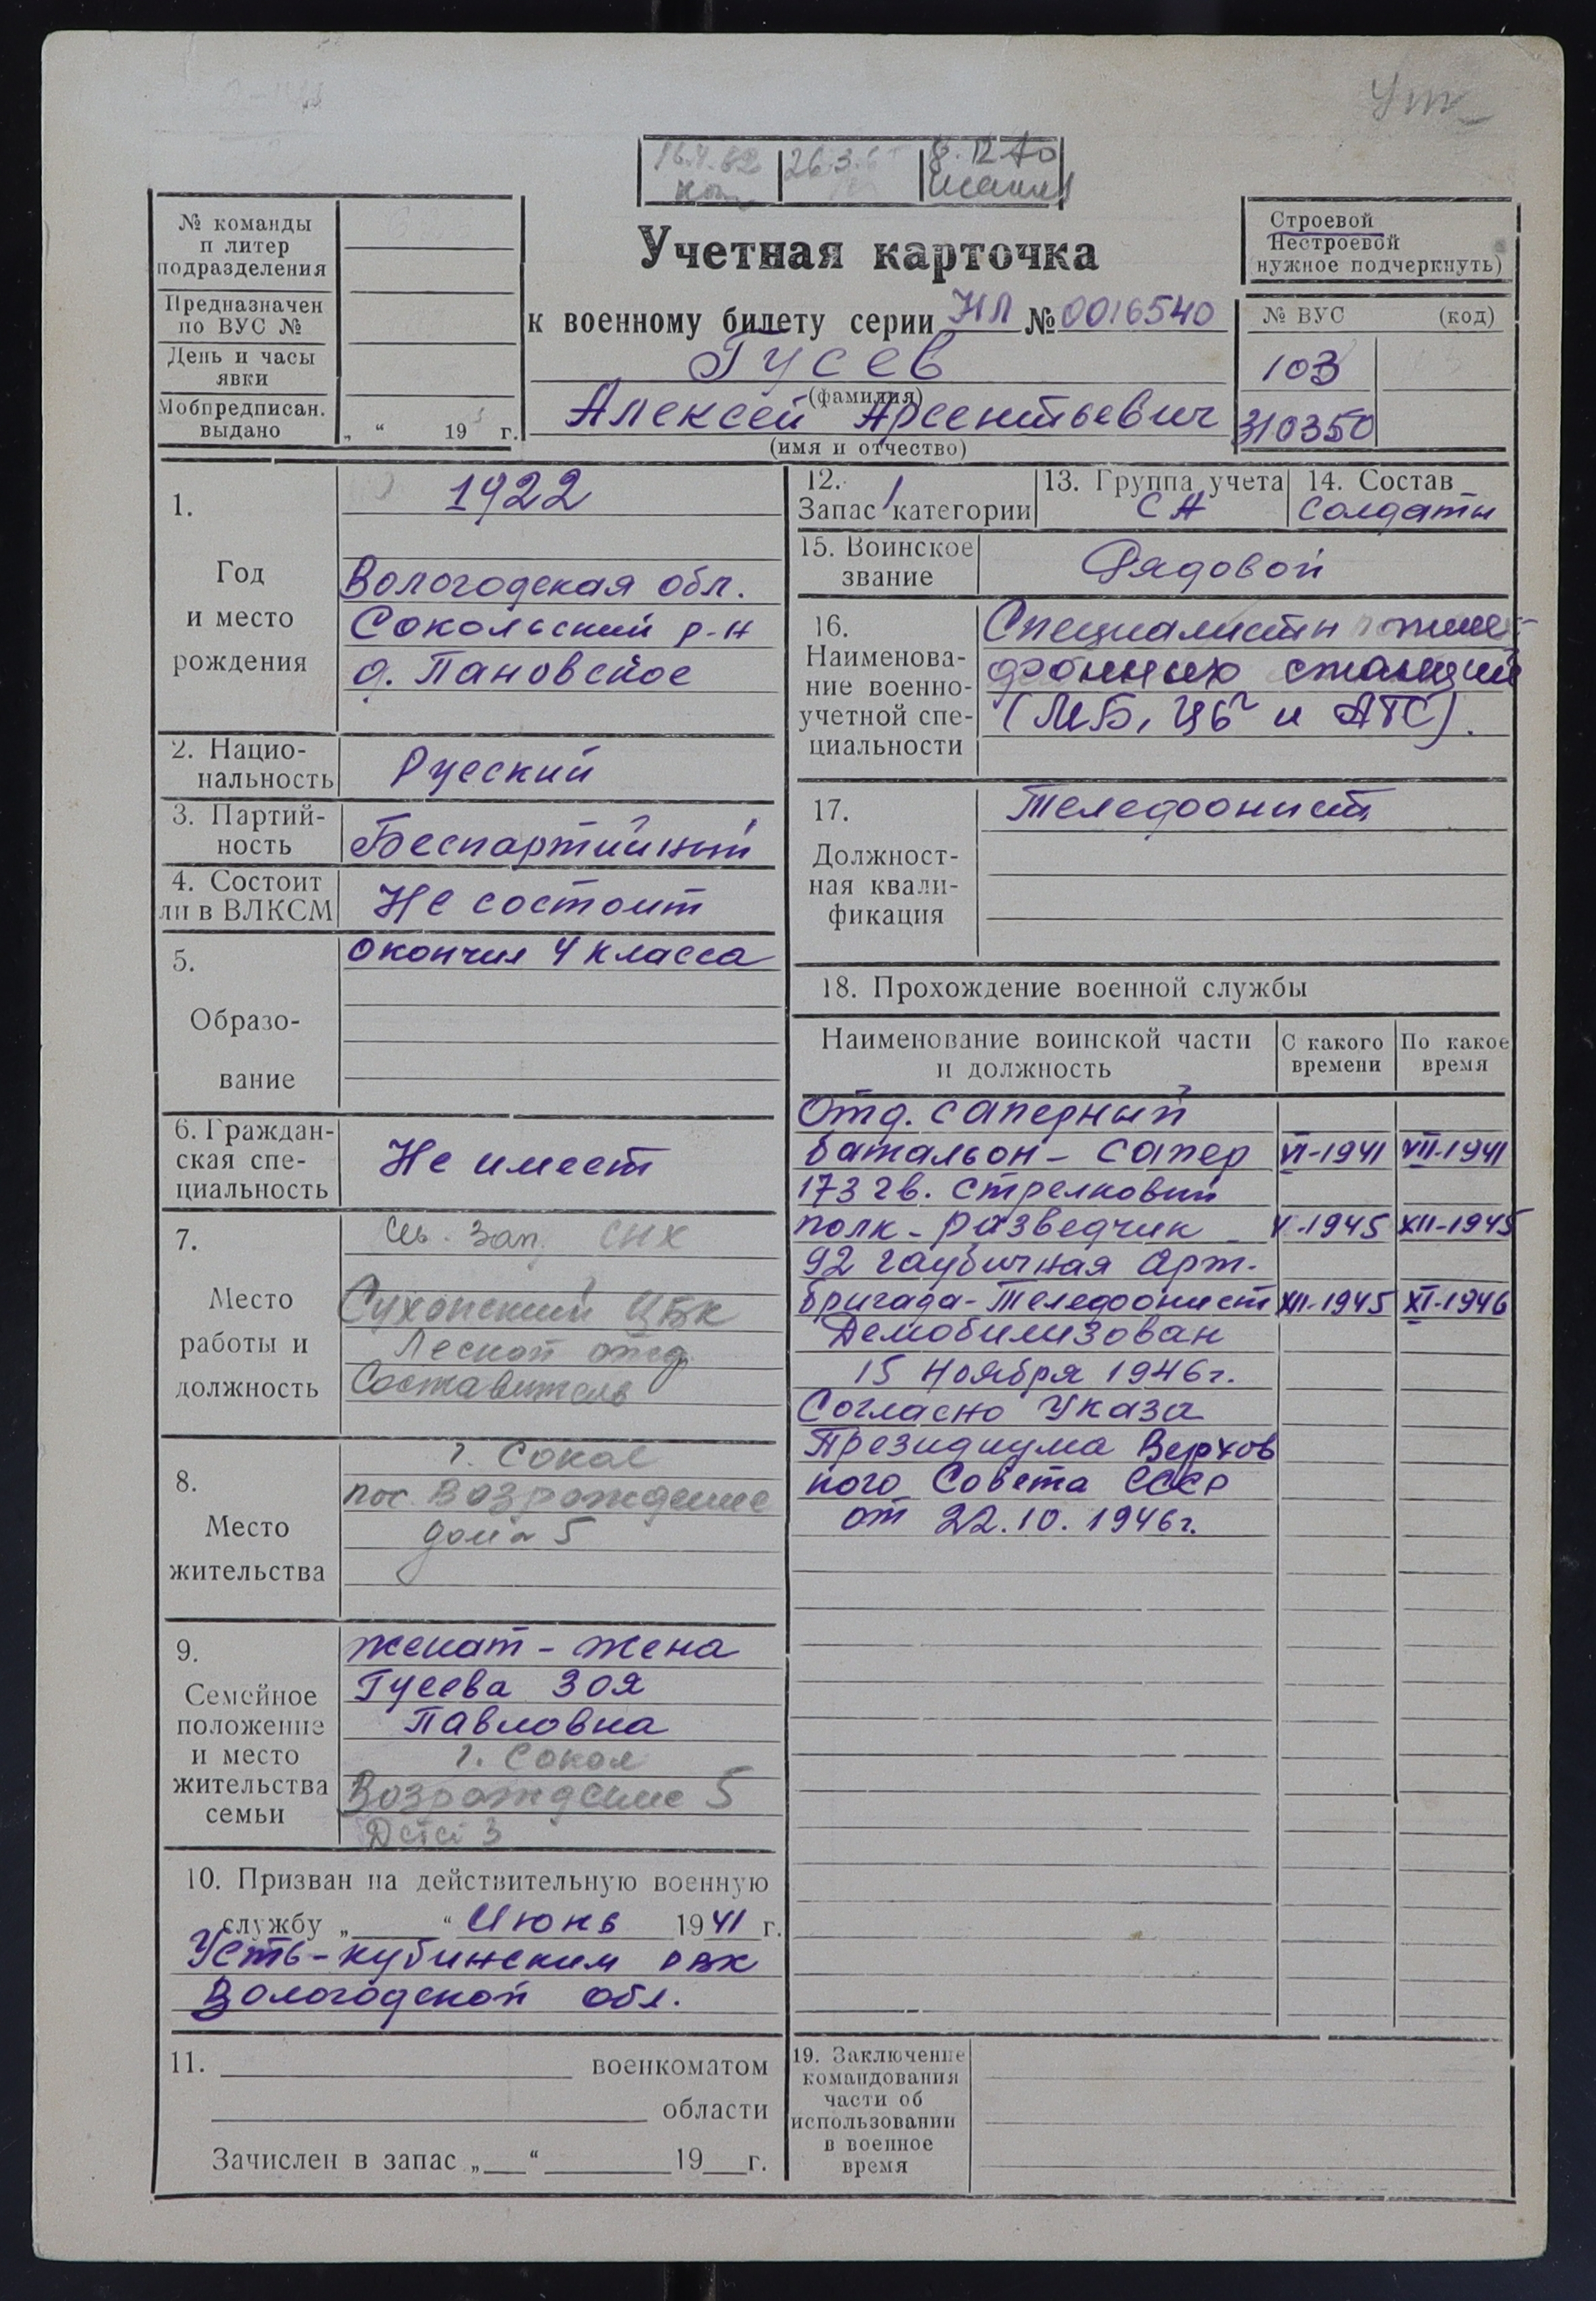 Ут
16.4.62
26.3.6
8.12.70
№ команды
п литер
подразделения
Предназначен
по ВУС №
День и часы
явки
Мобпредписан.
выдано
„ “ 19 г.
Учетная карточка
к военному билету серии НЛ № 0016540
Гусев
(фамилия)
Алексей Арсентьевич
(имя и отчество)
Строевой
Нестроевой
нужное подчеркнуть)
№ ВУС (код)
103
310350
1.
Год
и место
рождения
1922
Вологодская обл.
Сокольский р-н
д. Пановское
2. Нацио-
нальность
Русский
3. Партий-
ность
Беспартийный
4. Состоит
ли в ВЛКСМ
Не состоит
5.
Образо-
вание
окончил 4 класса
6. Граждан-
ская спе-
циальность
Не имеет
7.
Место
работы и
должность
Св. Зап. СНХ
Сухонский ЦБК
Лесной отд
Составитель
8.
Место
жительства
г. Сокол
пос. Возрождение
дом 5
9.
Семейное
положение
и место
жительства
семьи
женат - жена
Гусева Зоя
Павловна
г. Сокол
Возрождение 5
Детей 3
10. Призван на действительную военную
службу „ “ Июнь 1941 г.
Усть-Кубинским РВК
Вологодской обл.
11. военкоматом
области
Зачислен в запас „ “ 19 г.
12.
Запас 1 категории
13. Группа учета
СА
14. Состав
Солдаты
15. Воинское
звание
Рядовой
16.
Наименова-
ние военно-
учетной спе-
циальности
Специалисты теле-
фонных станций
(МБ, ЦБ и АТС).
17.
Должност-
ная квали-
фикация
Телефонист
18. Прохождение военной службы
Наименование воинской части
и должность
С какого
времени
По какое
время
Отд. саперный
батальон - сапер VI-1941 VII-1941
173 гв. стрелковый
полк - разведчик V-1945 XII-1945
92 гаубичная арт.
бригада - телефонист XII-1945 XI-1946
Демобилизован
15 ноября 1946г.
Согласно Указа
Президиума Верхов
ного Совета СССР
от 22.10.1946г.
19. Заключение
командования
части об
использовании
в военное
время